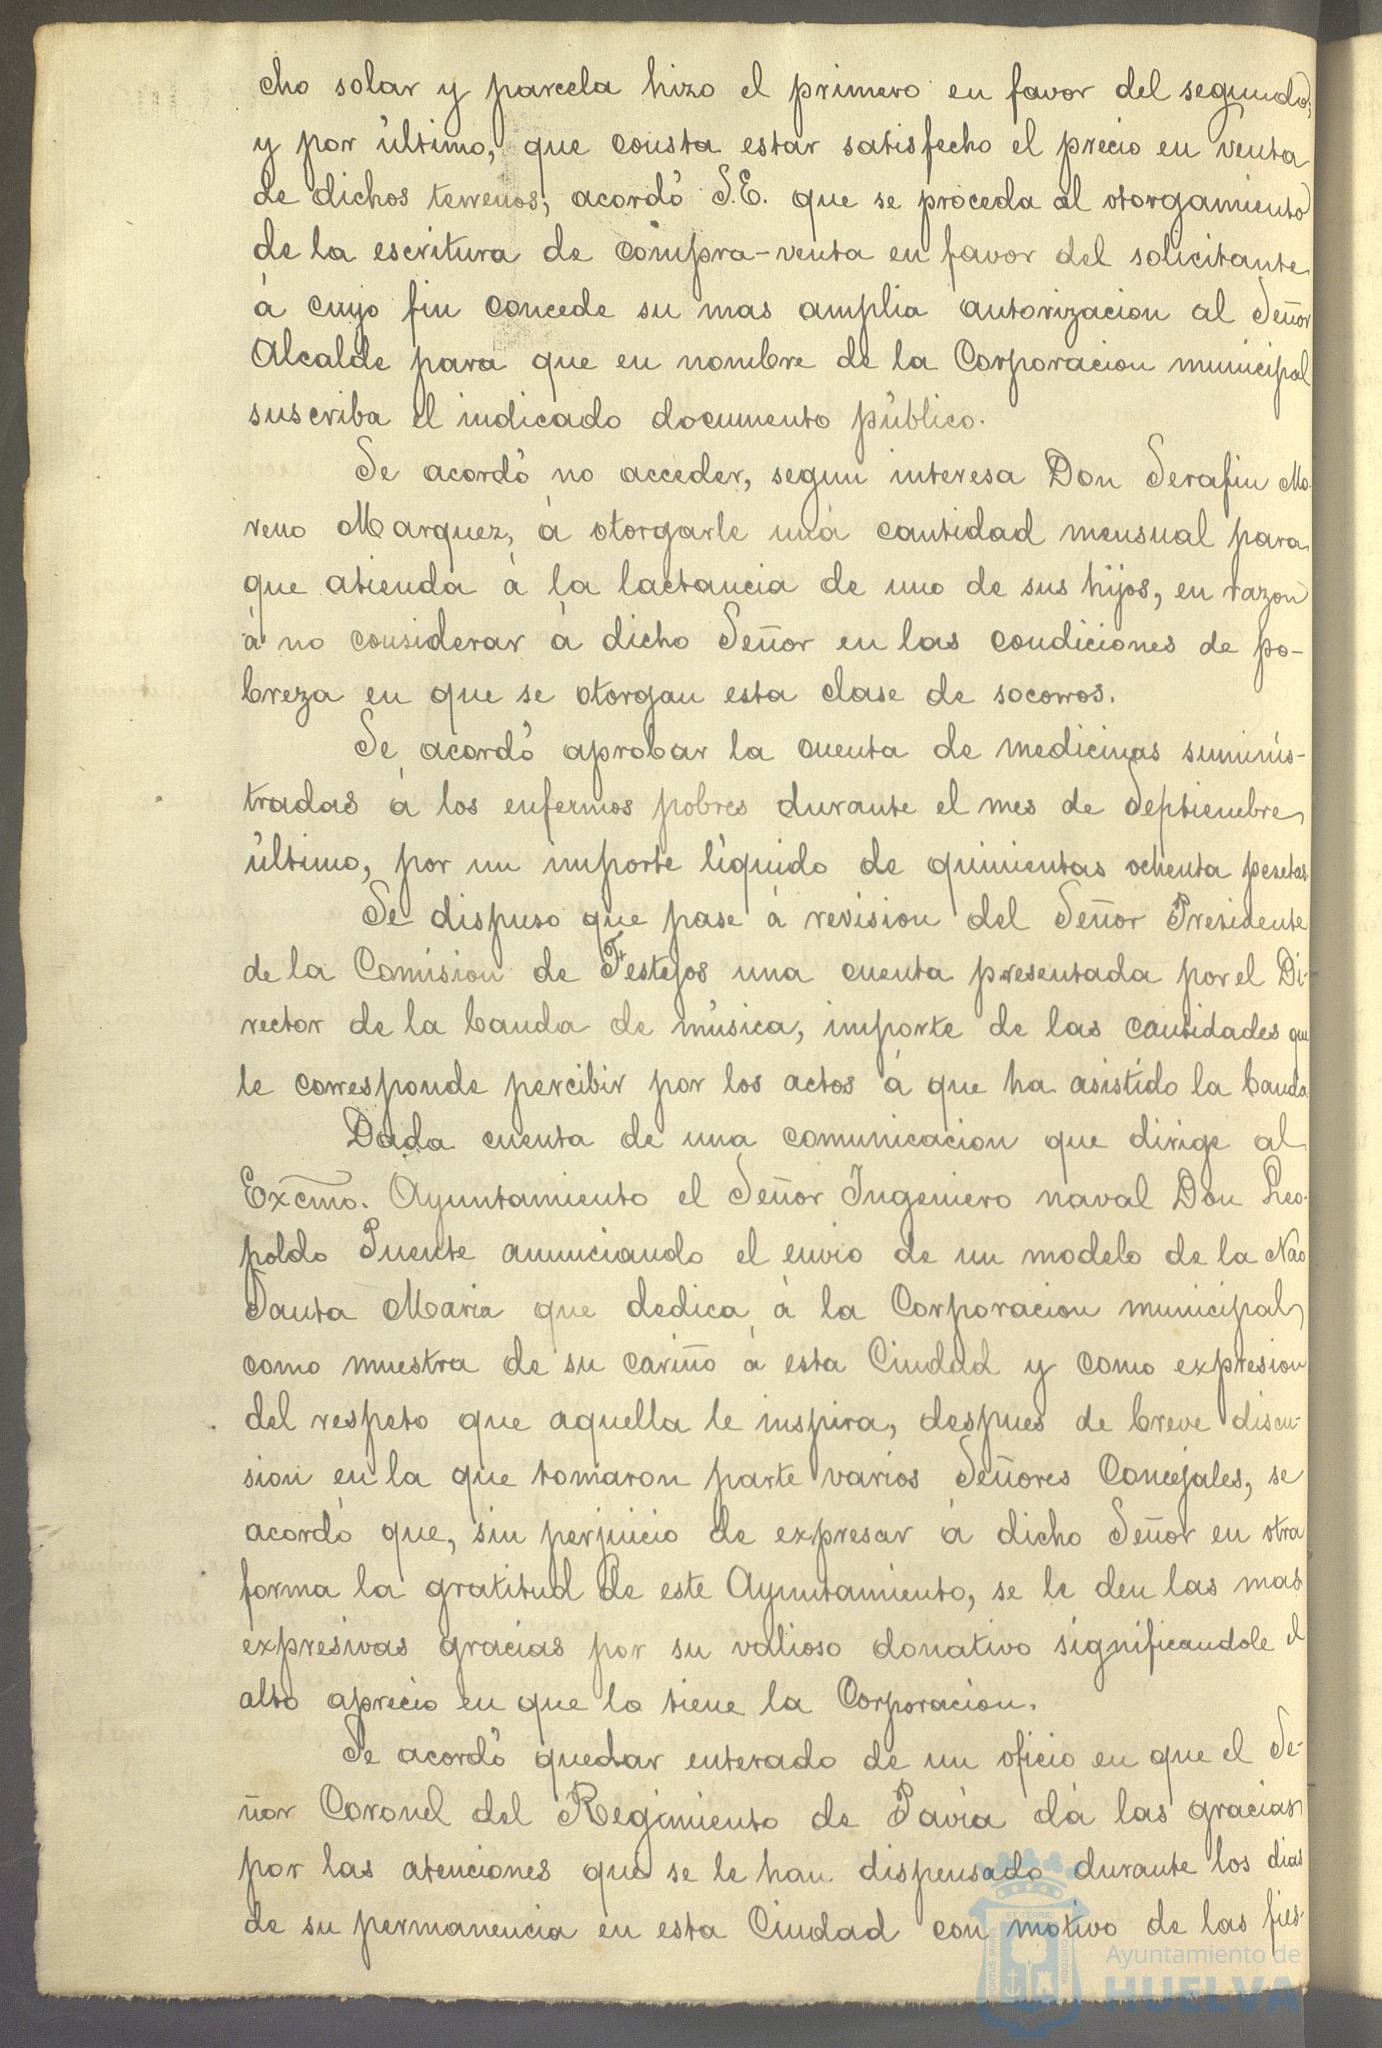 cho solar y parcela hizo el primero en favor del segundo;
y por último, que consta estar satisfecho el precio en venta
de dichos terrenos; acordó S.E. que se proceda al otorgamiento
de la escritura de compra-venta en favor del solicitante
á cuyo fin concede su mas amplia autorizacion al Señor
Alcalde para que en nombre de la Corporacion municipal
suscriba el indicado documento público.
Se acordó no acceder, segun interesa Don Serafin Mo-
reno Marquez, á otorgarle una cantidad mensual para
que atienda á la lactancia de uno de sus hijos, en razon
á no considerar á dicho Señor en las condiciones de po-
breza en que se otorgan esta clase de socorros.
Se acordó aprobar la cuenta de medicinas suminis-
tradas á los enfermos pobres durante el mes de Septiembre
último, por un importe líquido de quinientas ochenta pesetas
Se dispuso que pase á revision del Señor Presidente
de la Comision de Festejos una cuenta presentada por el Di-
rector de la banda de música, importe de las cantidades que
le corresponde percibir por los actos á que ha asistido la banda
Dada cuenta de una comunicacion que dirige al
Excmo. Ayuntamiento el Señor Ingeniero naval Don Leo-
poldo Puente anunciando el envio de un modelo de la Nao
Santa Maria que dedica á la Corporacion municipal
como muestra de su cariño á esta Ciudad y como expresion
del respeto que aquella le inspira, despues de breve discu-
sion en la que tomaron parte varios Señores Concejales, se
acordó que, sin perjuicio de expresar á dicho Señor en otra
forma la gratitud de este Ayuntamiento, se le den las mas
expresivas gracias por su valioso donativo significandole el
alto aprecio en que lo tiene la Corporacion.
Se acordó quedar enterado de un oficio en que el Se-
ñor Coronel del Regimiento de Pavía dá las gracias
por las atenciones que se le han dispensado durante los dias
de su permanencia en esta Ciudad con motivo de las fies-
Ayuntamiento de
HUELVA